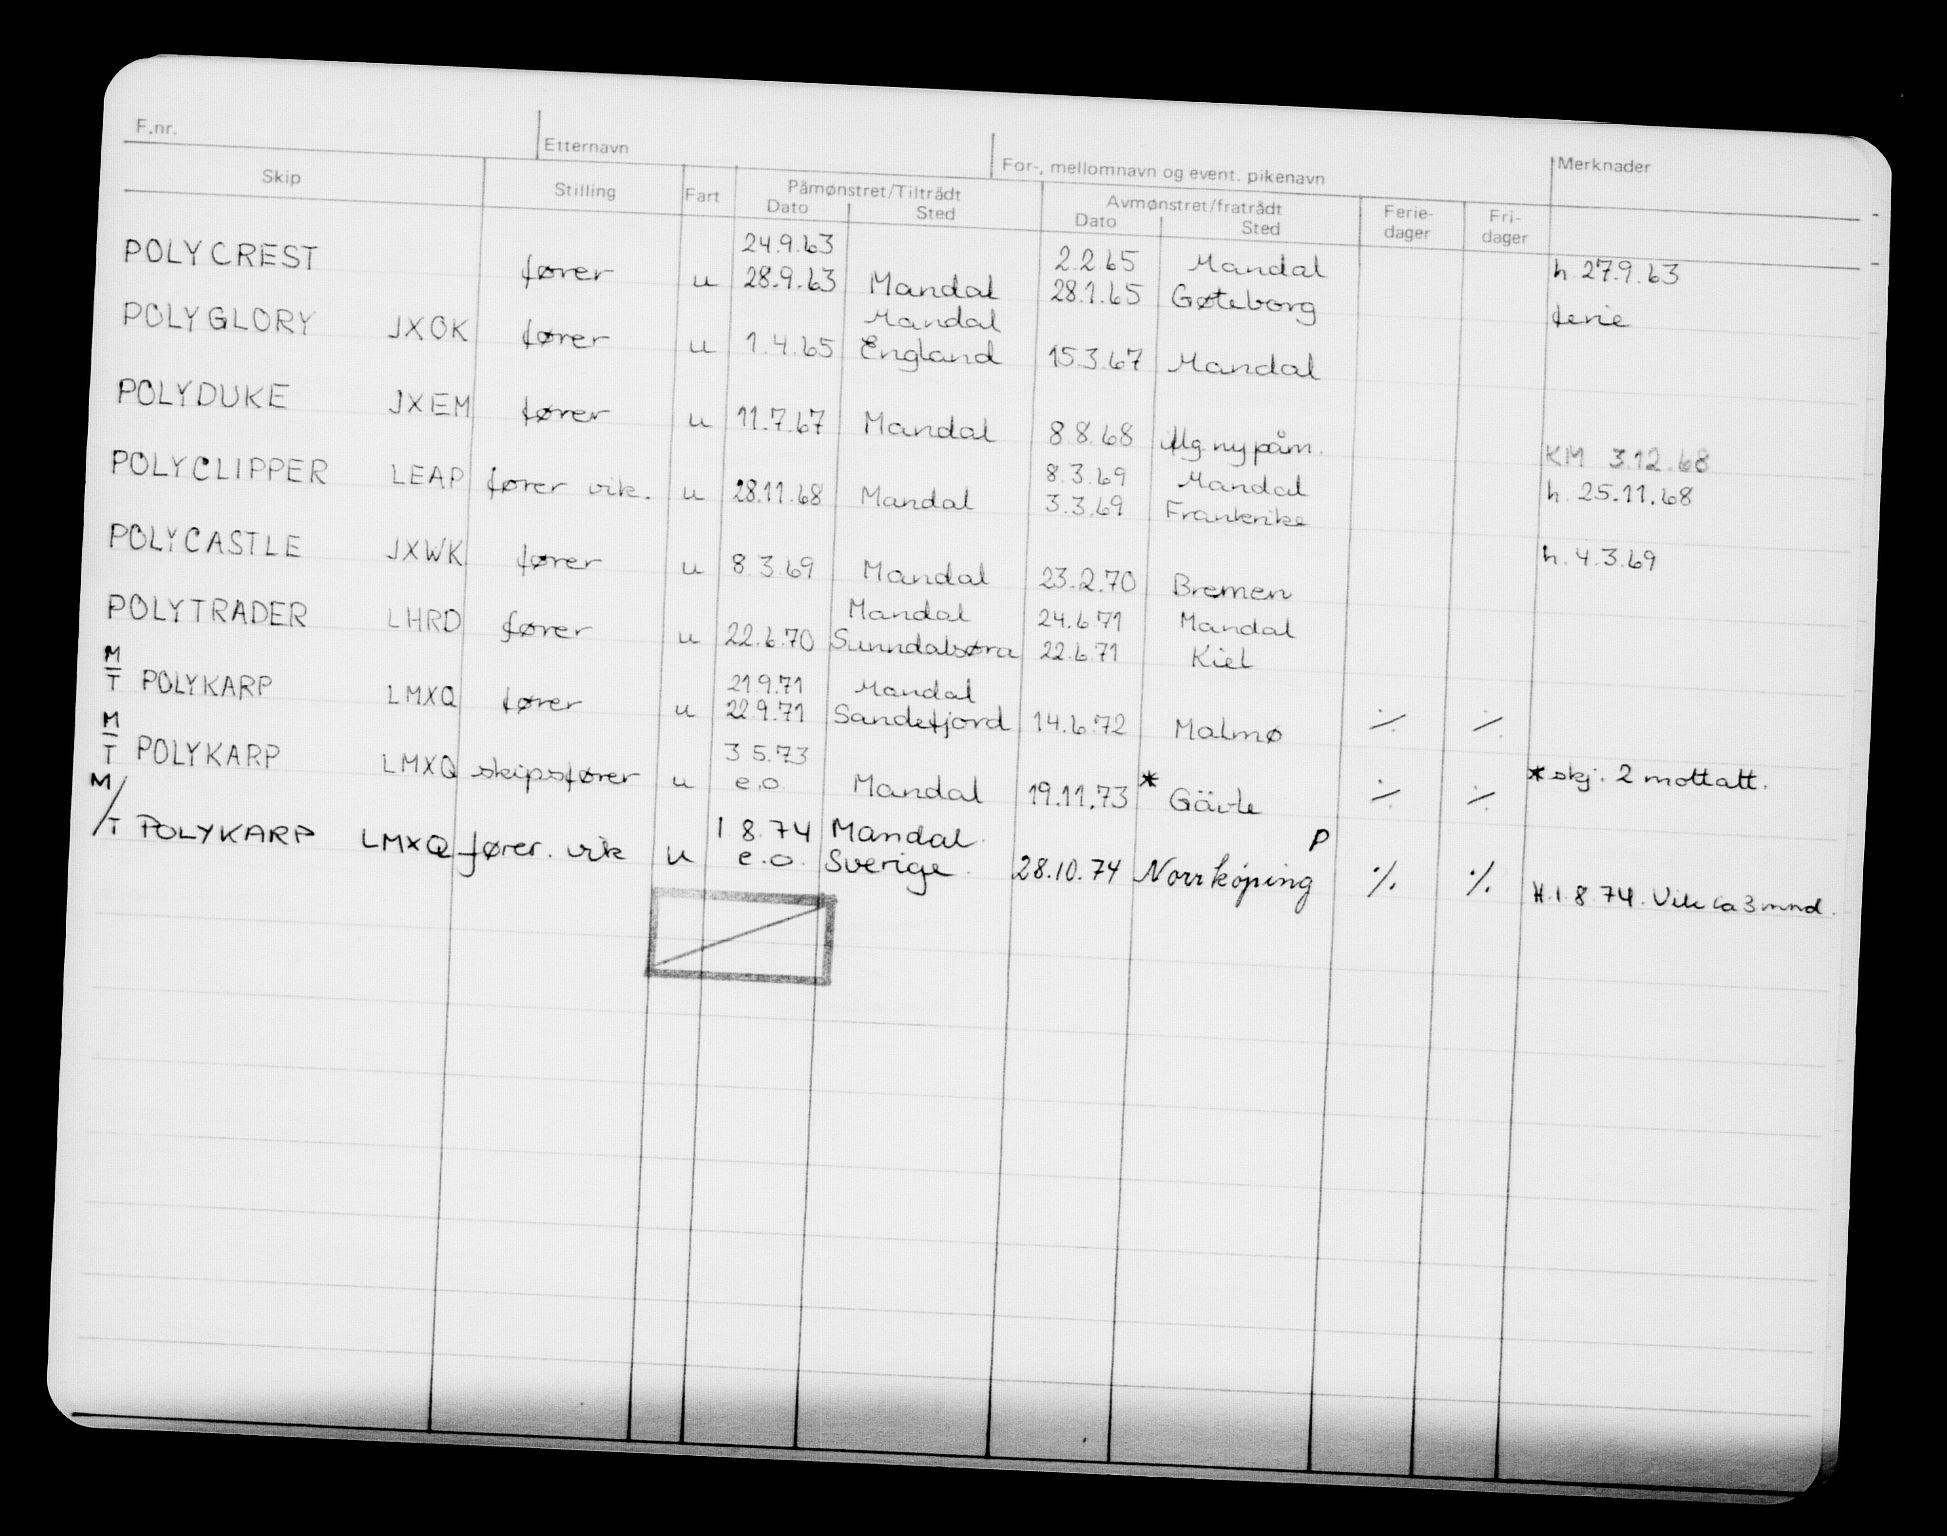 F.nr. Etternavn For-, mellomnavn og event. pikenavn Merknader
Skip Stilling Fart Påmønstret/Tiltrådt Avmønstret/fratrådt Ferie- Fri-
Dato Sted Dato Sted dager dager
24.9.63 2.2.65 Mandal h. 27.9.63
POLYCREST fører u 28.9.63 Mandal 28.1.65 Gøteborg ferie
Mandal
POLYGLORY JXOK fører u 1.4.65 England 15.3.67 Mandal
POLYDUKE JXEM fører u 11.7.67 Mandal 8.8.68 iflg. ny påm.
8.3.69 Mandal KM 3.12.68
POLYCLIPPER LEAP fører vik. u 28.11.68 Mandal 3.3.69 Frankrike h. 25.11.68
POLYCASTLE JXWK fører u 8.3.69 Mandal 23.2.70 Bremen h. 4.3.69
Mandal 24.6.71 Mandal
POLYTRADER LHRD fører u 22.6.70 Sunndalsøra 22.6.71 Kiel
21.9.71 Mandal
M/T POLYKARP LMXQ fører u 22.9.71 Sandefjord 14.6.72 Malmø ./. ./.
3.5.73
M/T POLYKARP LMXQ skipsfører u e.o. Mandal 19.11.73 * Gävle ./. ./. * skj. 2 mottatt.
1.8.74 Mandal. P
M/T POLYKARP LMXQ fører. vik u e.o. Sverige. 28.10.74 Norrköping ./. ./. H.1.8.74. Vik ca 3 mnd.